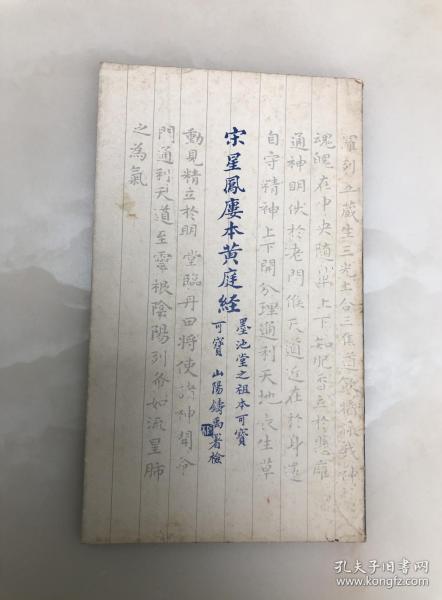 羅列五藏生三光上合三焦道飲醬漿我神
魂魄在中央隨鼻上下知肥香立於懸雍
通神明伏於老門候天道近在於身還
自守精神上下開分理通利天地長生草
宋星鳳廔本黄庭経
墨池堂之祖本可寳
可寳 山陽鑄禹署檢
動見精立於明堂臨丹田將使諸神開命
門通利天道至靈根陰陽列布如流星肺
之為氣
孔夫子旧书网
www.kongfz.com